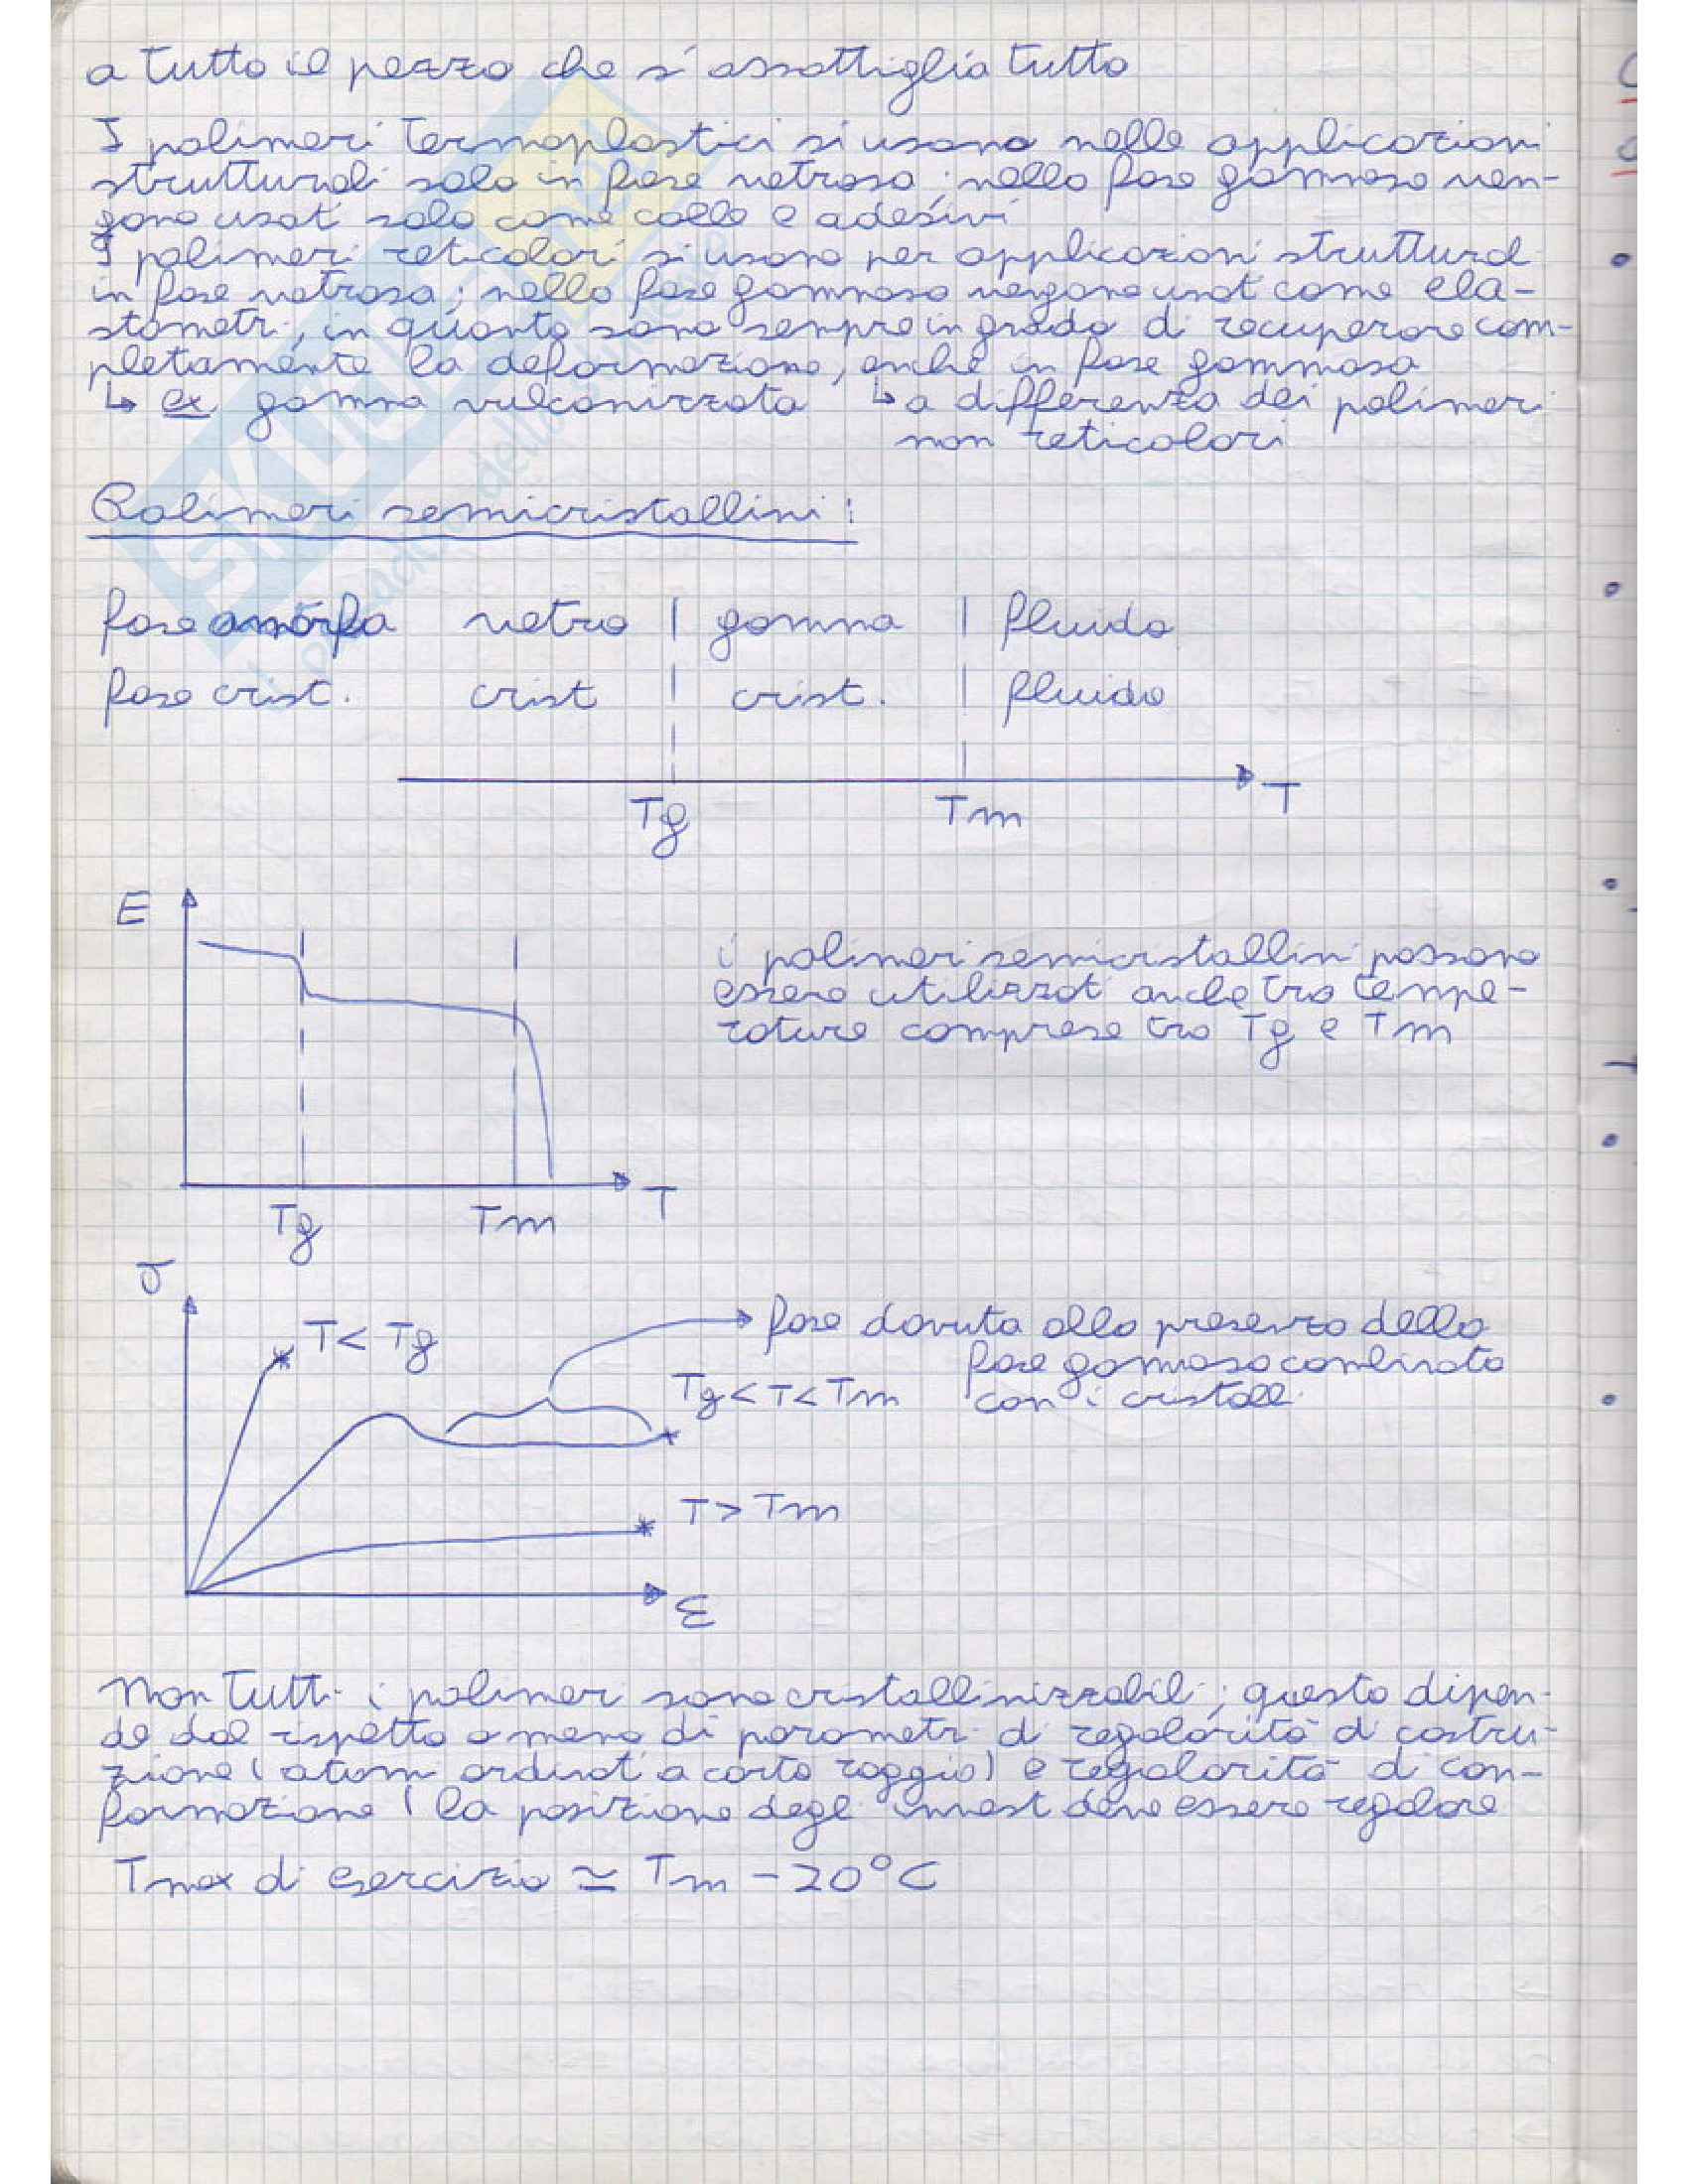 a tutto il pezzo che si assottiglia tutto
I polimeri termoplastici si usano nelle applicazioni
strutturali solo in fase vetrosa; nella fase gommosa ven-
gono usati solo come colle e adesivi
I polimeri reticolari si usano per applicazioni strutturali
in fase vetrosa; nella fase gommosa vengono usati come ela-
stometri, in quanto sono sempre in grado di recuperare com-
pletamente la deformazione, anche in fase gommosa
↳ ex gomma vulcanizzata ↳ a differenza dei polimeri
non reticolari
Polimeri semicristallini:
fase amorfa vetro | gomma | fluido
fase crist. crist | crist. | fluido
T
Tg Tm
E
i polimeri semicristallini possono
essere utilizzati anche tra tempe-
rature comprese tra Tg e Tm
T
Tg Tm
σ
T < Tg
fase dovuta alla presenza della
fase gommosa combinata
con i cristalli
Tg < T < Tm
T > Tm
ε
Non tutti i polimeri sono cristallinizzabili; questo dipen-
de dal rispetto o meno di parametri di regolarità di costru-
zione (atomi ordinati a corto raggio) e regolarità di con-
formazione (la posizione degli innesti deve essere regolare
Tmax di esercizio ≃ Tm - 20°C
SKUOLA